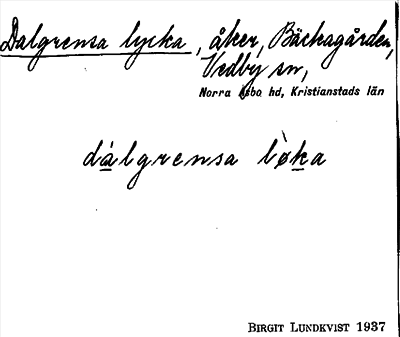 Dalgrensa lycka, åker, Bäckagården,
Vedby sn,
Norra Åsbo hd, Kristianstads län
dálgrensa lø̀ka
BIRGIT LUNDKVIST 1937